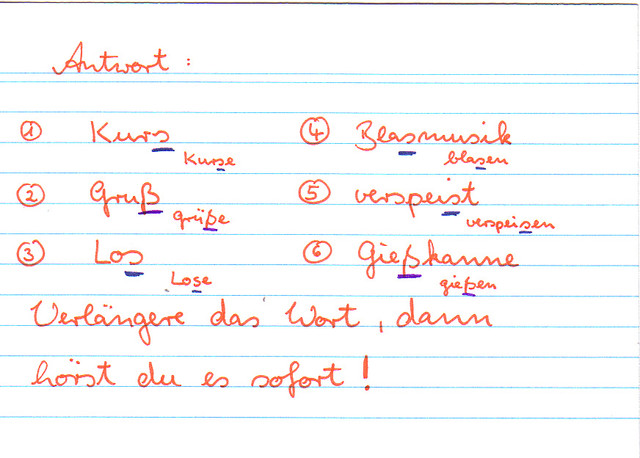 Antwort:
① Kurs ④ Blasmusik
Kurse blasen
② Gruß ⑤ verspeist
grüße verspeisen
③ Los ⑥ Gießkanne
Lose gießen
Verlängere das Wort, dann
hörst du es sofort!